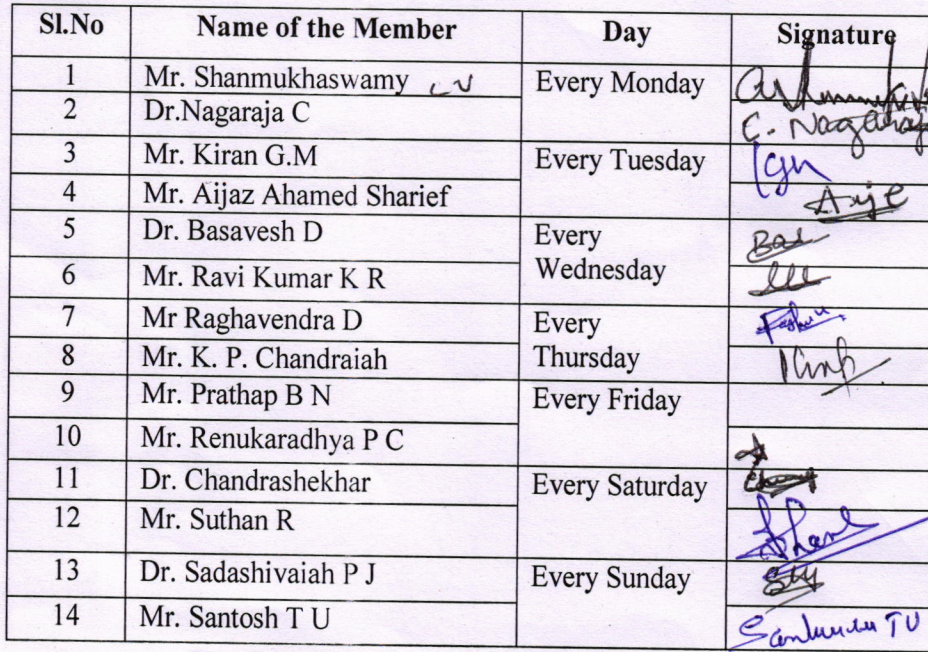 Sl.No Name of the Member Day Signature
1 Mr. Shanmukhaswamy Every Monday
2 Dr.Nagaraja C C. Nagaraja
3 Mr. Kiran G.M Every Tuesday
4 Mr. Aijaz Ahamed Sharief
5 Dr. Basavesh D Every
Wednesday
6 Mr. Ravi Kumar K R
7 Mr Raghavendra D Every
Thursday
8 Mr. K. P. Chandraiah
9 Mr. Prathap B N Every Friday
10 Mr. Renukaradhya P C
11 Dr. Chandrashekhar Every Saturday
12 Mr. Suthan R
13 Dr. Sadashivaiah P J Every Sunday
14 Mr. Santosh T U TU